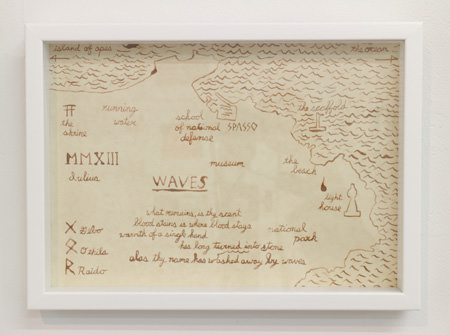 island of apes
the ocean
the shrine
running water
school of national defense
SPASSO
the scaffold
MMXIII
Iulius
museum
the beach
WAVES
light house
what remains, is thy scent
blood stains is where blood stays
warmth of a single hand
has long turned into stone
alas thy name has washed away by waves
national park
Othila
Raido